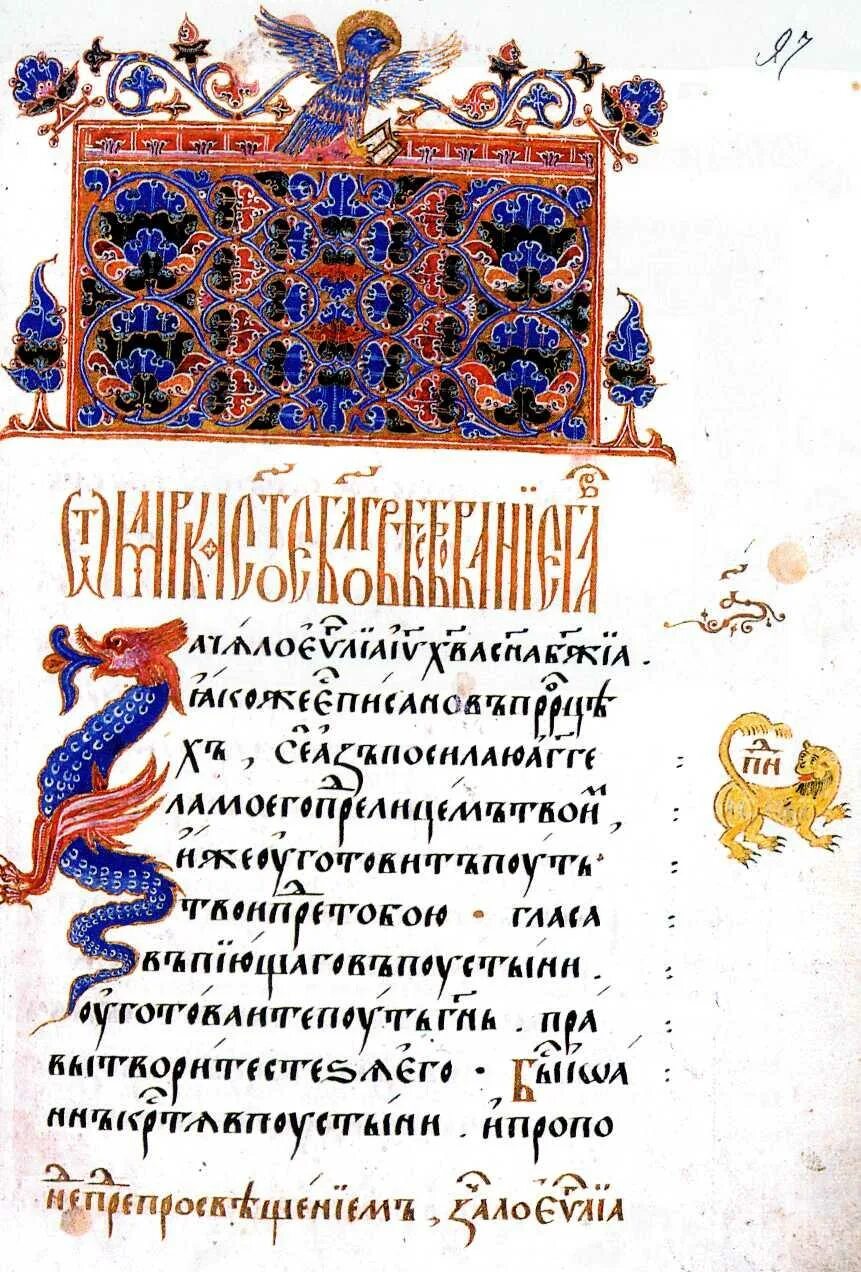 97
Ѿ МАРКА СТОЕ БЛГВѢСТВОВАНЇЕ ГЛА
ачѧло еѵⷢ҇лїа іѵ҃ хв҃а сн҃а бж҃їа .
ꙗкоже е҆сть писано въ прⷪ҇рцѣ
хъ , се азъ посилаю аг҃ге
ла моего преⷣ лицемъ твоиⷨ ,
и҆же оу҆готовитъ поуть
твои преⷣ тобою · гласъ
въпїю́щаго въ поустыни .
оу҆готоваите поуть гн҃ь . пра
вы творите стеѕѧ е҆го · Быⷭ҇ їѡа
ннъ крⷭ҇тѧ в поустыни . и҆ пропо
неⷣ преⷣ просвѣщенїемъ , заⷱ҇ало еѵⷢ҇лїа